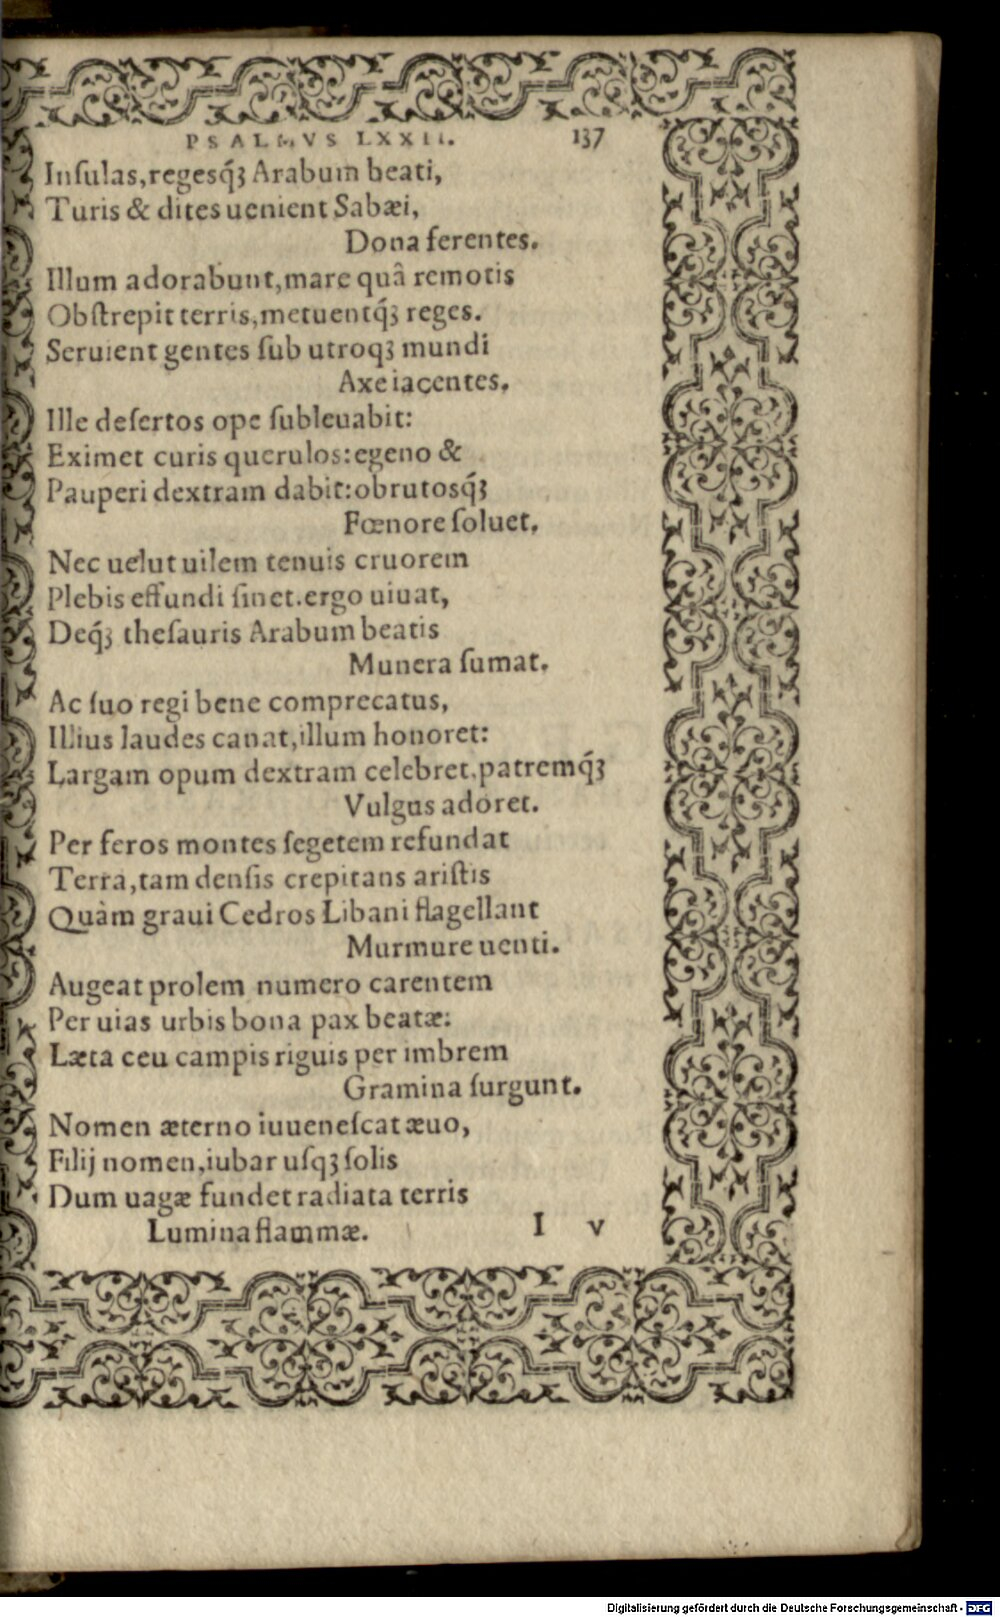 PSALMVS LXXII. 137
Inſulas,regesq́ꝫ Arabum beati,
Turis & dites uenient Sabæi,
Dona ferentes.
Illum adorabunt,mare quâ remotis
Obſtrepit terris,metuentq́ꝫ reges.
Seruient gentes ſub utroqꝫ mundi
Axe iacentes.
Ille deſertos ope ſubleuabit:
Eximet curis querulos:egeno &
Pauperi dextram dabit:obrutosq́ꝫ
Fœnore ſoluet.
Nec uelut uilem tenuis cruorem
Plebis effundi ſinet.ergo uiuat,
Deq́ꝫ theſauris Arabum beatis
Munera ſumat.
Ac ſuo regi bene comprecatus,
Illius laudes canat,illum honoret:
Largam opum dextram celebret,patremq́ꝫ
Vulgus adoret.
Per feros montes ſegetem refundat
Terra,tam denſis crepitans ariſtis
Quàm graui Cedros Libani flagellant
Murmure uenti.
Augeat prolem numero carentem
Per uias urbis bona pax beatæ:
Læta ceu campis riguis per imbrem
Gramina ſurgunt.
Nomen æterno iuueneſcat æuo,
Filij nomen,iubar uſqꝫ ſolis
Dum uagæ fundet radiata terris
Lumina flammæ. I v
Digitalisierung gefördert durch die Deutsche Forschungsgemeinschaft - DFG